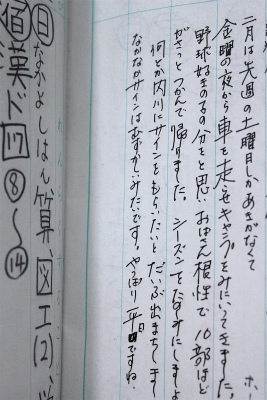 ホー
二月は先週の土曜日しかあきがなくて
金曜の夜から車を走らせキャンプをみにいってきました。
野球好きの分をと思いおばさん根性で10部ほど
がさっとつかんで帰りました。シーズンをたのしみにしましょ
何とか内川にサインをもらいたいとだいぶ出まちしま
なかなかサインはむずかしいみたいです。やっぱり平日ですね。
日 なかよしはん、算、図工(2)、
宿 漢ド 17 ⑧〜⑭